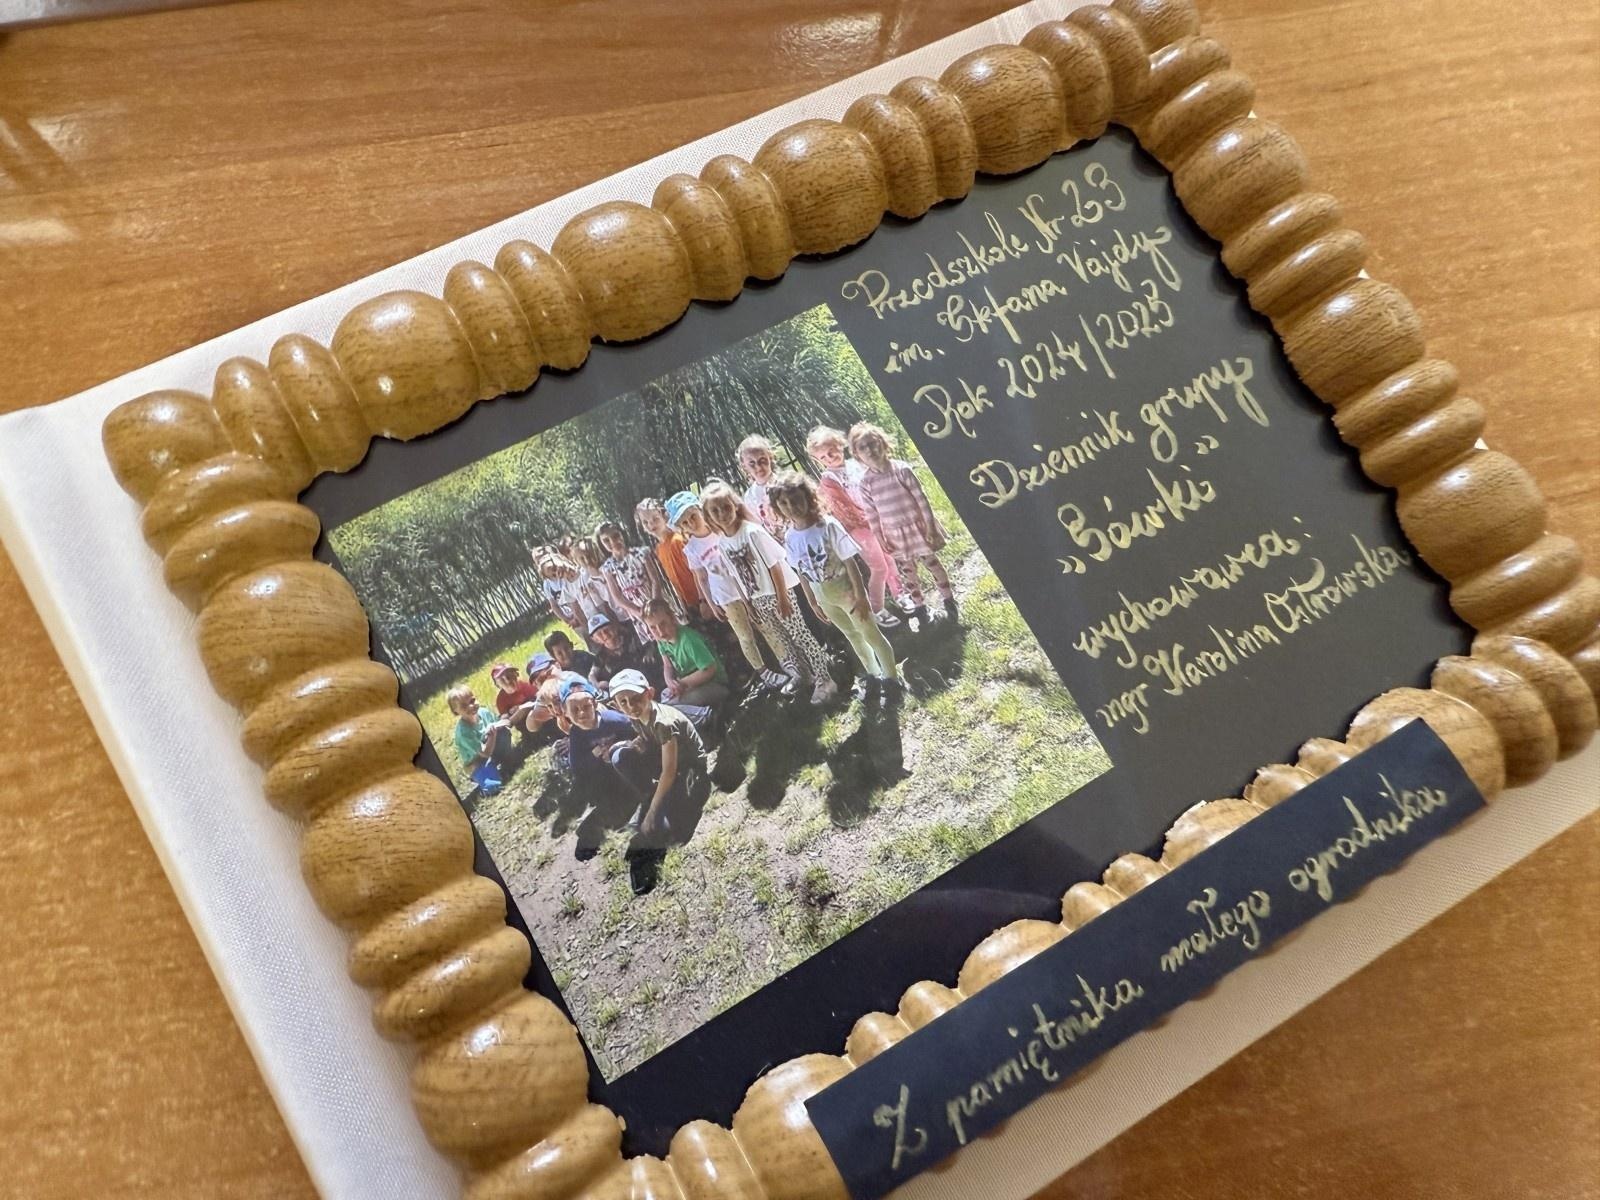 Przedszkole Nr 23
im. Stefana Vajdy
Rok 2024/2025
Dziennik grupy
„Sówki”
wychowawca:
mgr Karolina Ostrowska
Z pamiętnika małego ogrodnika